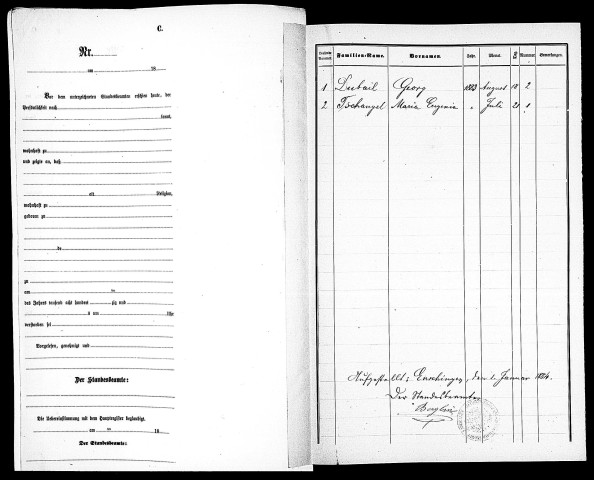 C.
Nr.
am 18
Vor dem unterzeichneten Standesbeamten erschien heute, der
Persönlichkeit nach
kannt,
wohnhaft zu
und zeigte an, daß
alt Religion,
wohnhaft zu
geboren zu
de
zu
am ten
des Jahres tausend acht hundert zig und
um Uhr
verstorben sei
Vorgelesen, genehmigt und
Der Standesbeamte:
Die Uebereinstimmung mit dem Hauptregister beglaubigt,
am ten 18
Der Standesbeamte:
Familien-Name. Vornamen. Jahr. Monat. Tag Nummer Bemerkungen.
1 Dubail Georg 1883 August 18 2
2 Tschangel Maria Eugenia " Juli 21 1
Aufgestellt: , den 1. Januar 1884.
Der Standesbeamte